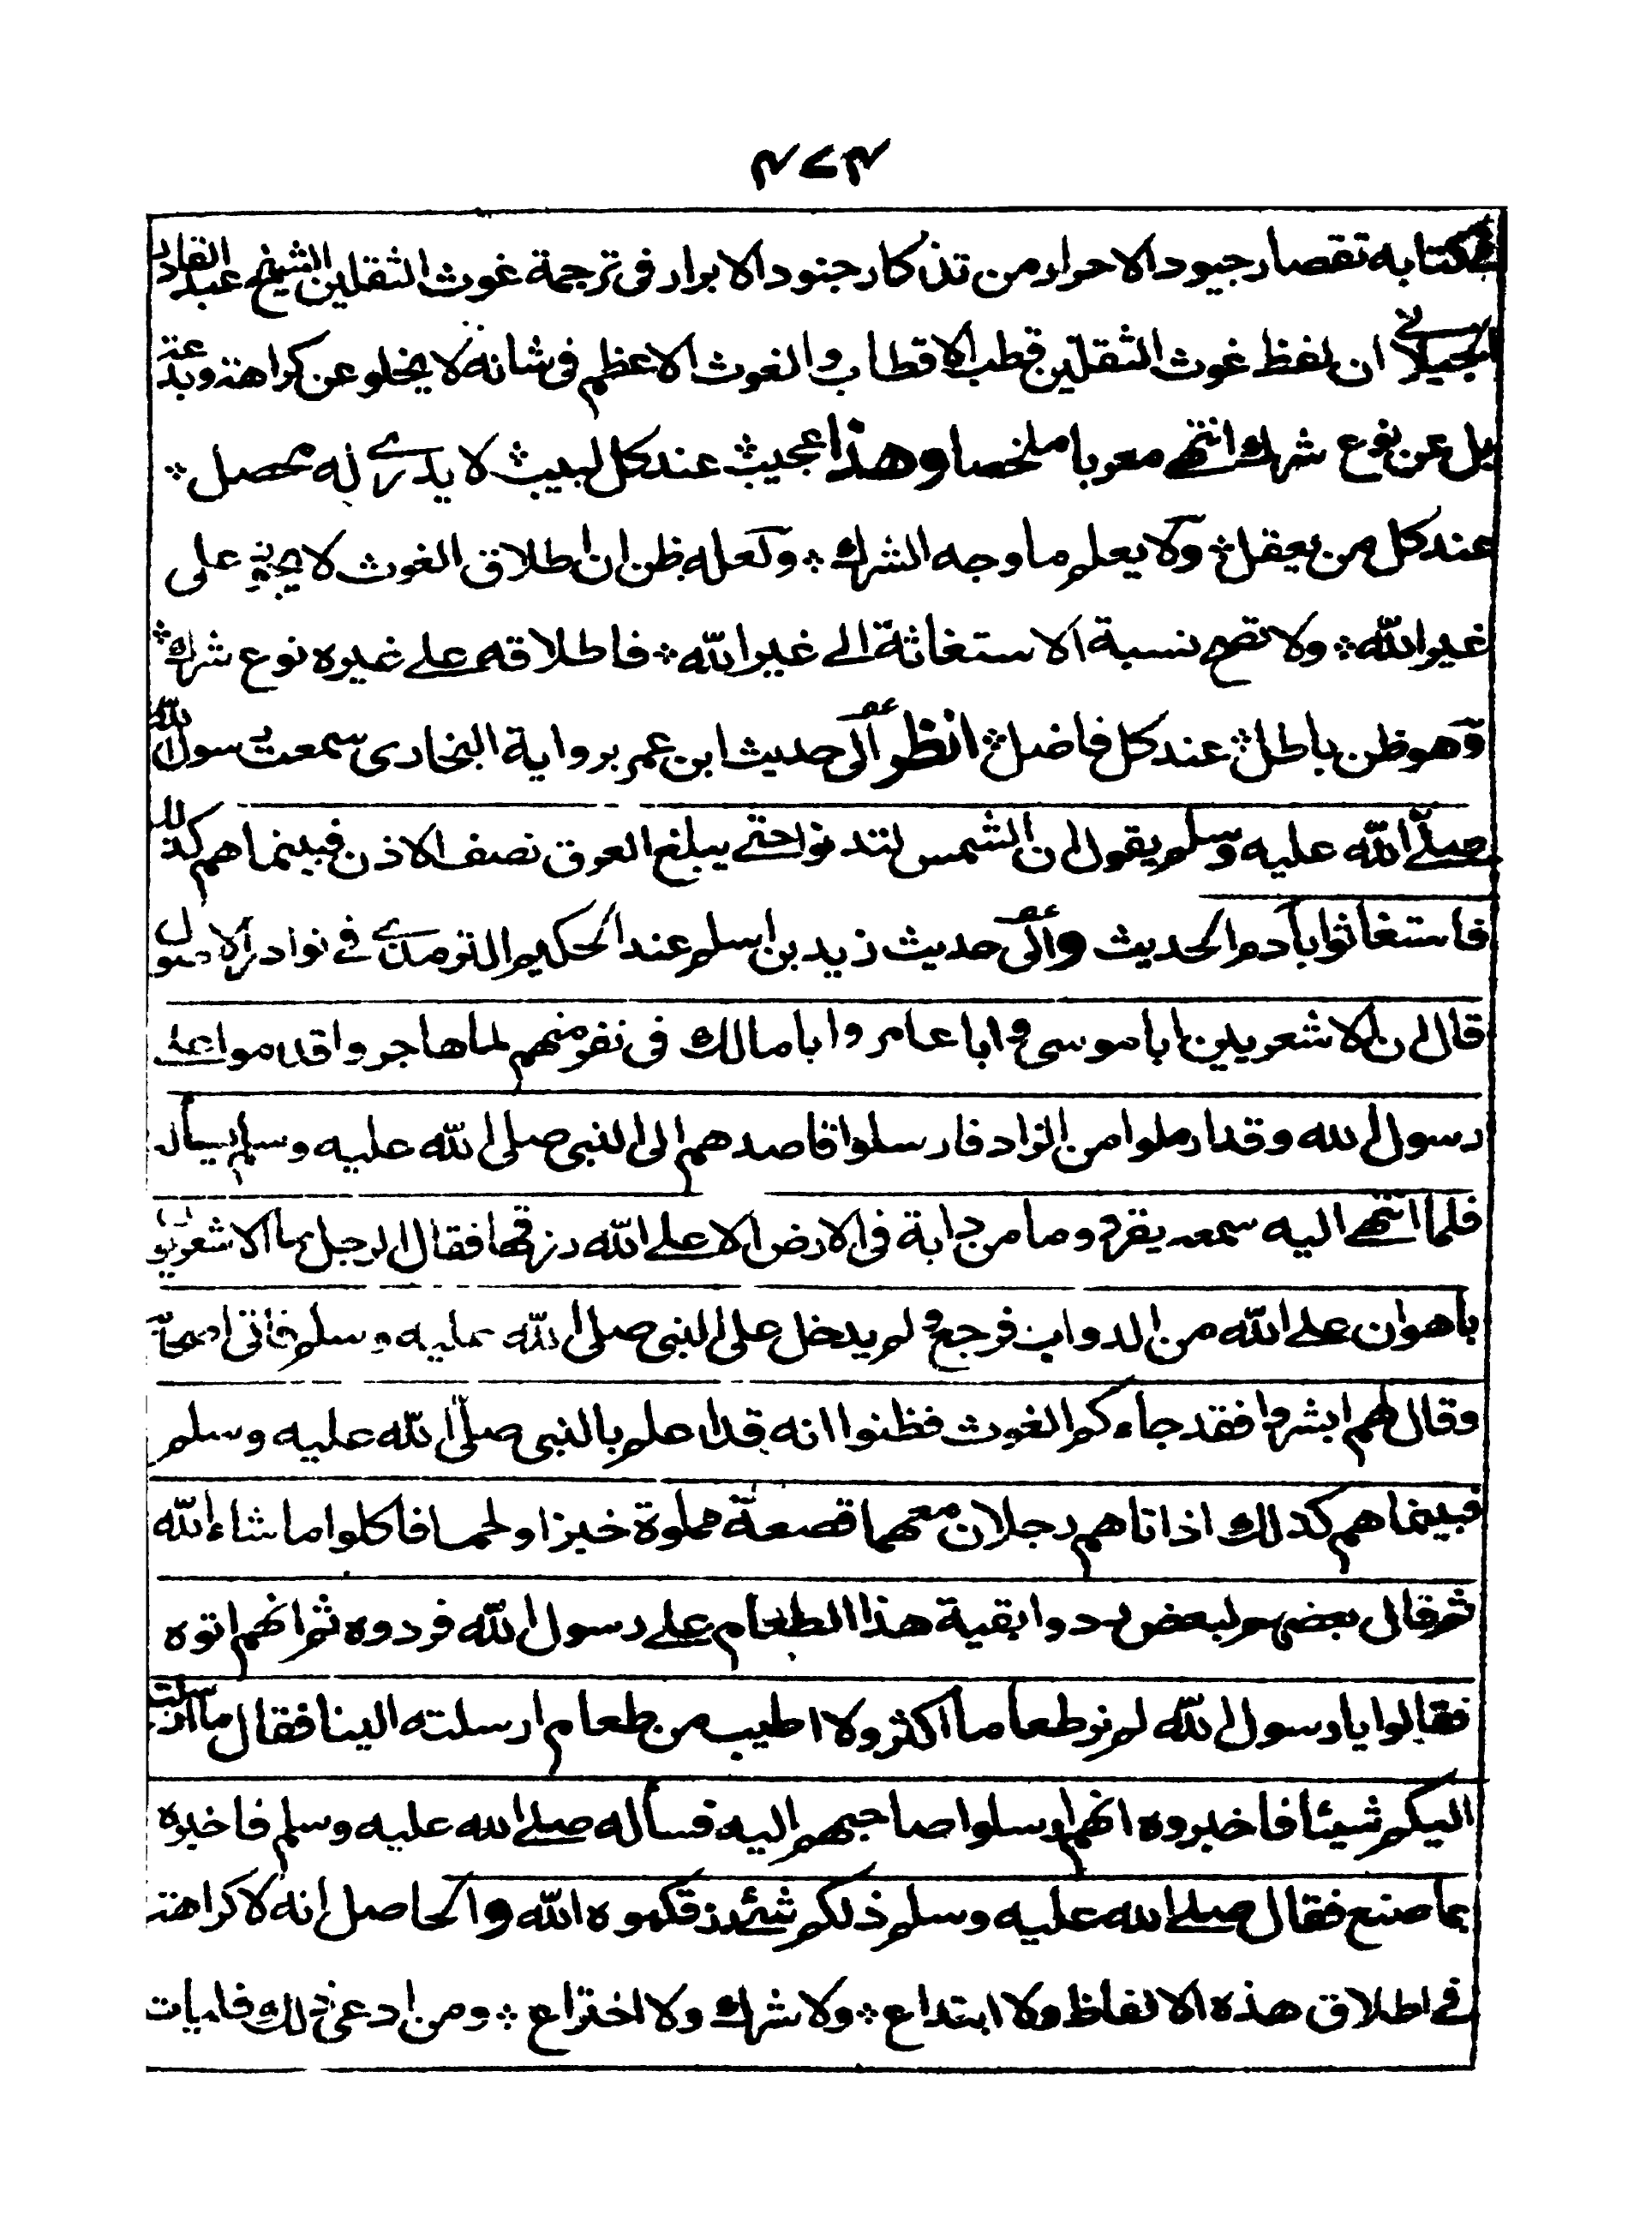 ٣٧٣
في كتابه تقصار جيود الاحرار من تذكار جنود الابرار فى ترجمة غوث الثقلين الشيخ عبد القادر
الجيلاني ان لفظ غوث الثقلين وقطب الاقطاب والغوث الاعظم فى شانه لا يخلو عن كراهة وبدعة
بل عن نوع شرك انتهى معربا ملخصا وهذا عجيب عند كل لبيب لا يدرى له محصل ؞
عند كل من يعقل ؞ ولا يعلم ما وجه الشرك ؞ ولعله ظن ان اطلاق الغوث لا يجوز على
غير الله ؞ ولا تصح نسبة الاستغاثة الى غير الله ؞ فاطلاقه على غيره نوع شرك ؞
وهو ظن باطل ؞ عند كل فاضل ؞ انظر الى حديث ابن عمر برواية البخارى سمعت رسول الله
صلى الله عليه وسلم يقول ان الشمس لتدنوا حتى يبلغ العرق نصف الاذن فبينما هم كذلك
فاستغاثوا بآدم الحديث والى حديث زيد بن اسلم عند الحكيم الترمذى فى نوادر الاصول
قال ان الاشعريين ابا موسى و ابا عامر و ابا مالك فى نفر منهم لما هاجروا قدموا على
رسول الله وقد ارملوا من الزاد فارسلوا قاصدهم الى النبى صلى الله عليه وسلم يساله
فلما انتهى اليه سمعه يقرء وما من دابة فى الارض الا على الله رزقها فقال الرجل ما الاشعريون
باهوان على الله من الدواب فرجع ولم يدخل على النبى صلى الله عليه وسلم فاتى اصحابه
وقال لهم ابشروا فقد جاءكم الغوث فظنوا انه قد اعلم بالنبى صلى الله عليه وسلم
فبينما هم كذلك اذ اتاهم رجلان معهما قصعة مملوة خبزا ولحما فاكلوا ما شاء الله
ثم قال بعضهم لبعض ردوا بقية هذا الطعام على رسول الله فردوه ثم انهم اتوه
فقالوا يا رسول الله لم نر طعاما اكثر ولا اطيب من طعام ارسلته الينا فقال ما ارسلت
اليكم شيئا فاخبروه انهم ارسلوا صاحبهم اليه فسأله صلى الله عليه وسلم فاخبره
بما صنع فقال صلى الله عليه وسلم ذلكم شئ رزقكموه الله والحاصل انه لا كراهة
فى اطلاق هذه الالفاظ ولا ابتداع ؞ ولا شرك ولا اختراع ؞ ومن ادعى ذلك فليات